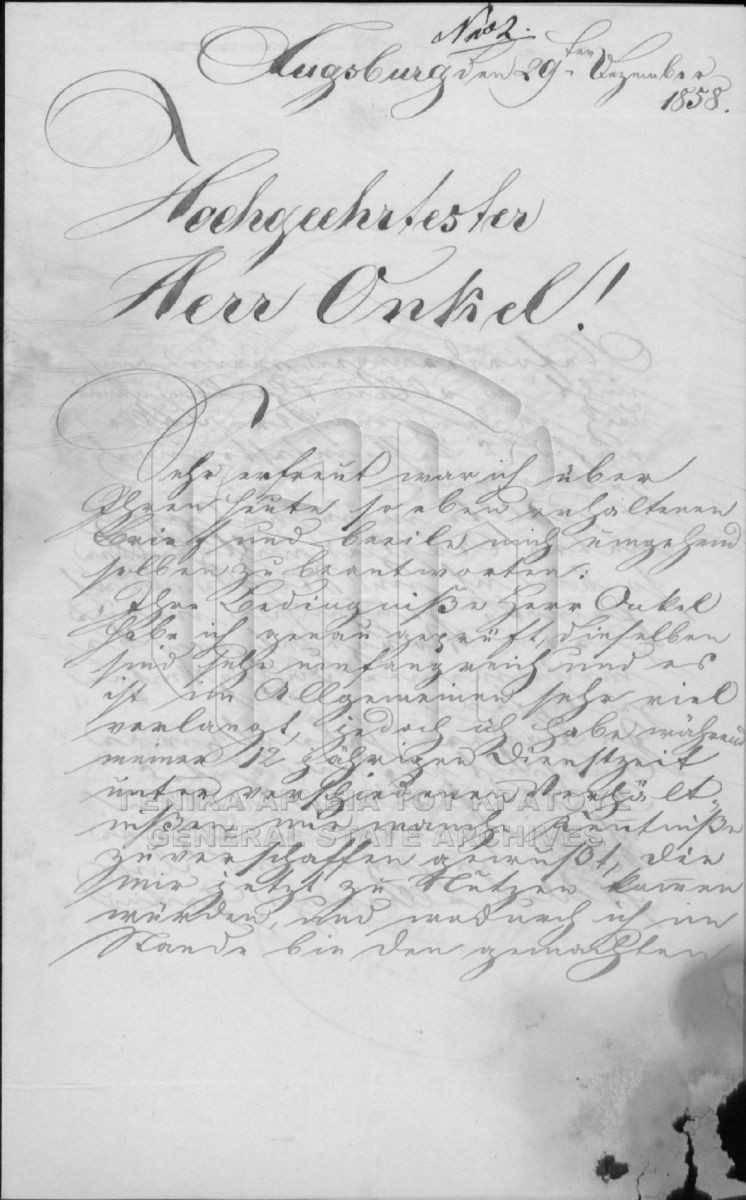 No 2.
Augsburg den 29ten Dezember
1858.
Hochgeehrtester
Herr Onkel!
Sehr erfreut war ich über
Ihren heute so eben erhaltenen
Brief und beeile mich umgehend
selben zu beantworten:
Ihre Bedingniße Herr Onkel
habe ich genau geprüft, dieselben
sind sehr umfangreich und es
ist im Allgemeinen sehr viel
verlangt, jedoch ich habe während
meiner 12 jährigen Dienstzeit
unter verschiedenen Verhält-
nißen mir manche Kentniße
zuverschaffen gewußt, die
mir jetzt zu Nutzen kommen
würden, und wodurch ich im
Stande bin den gemachten
ΓΕΝΙΚΑ ΑΡΧΕΙΑ ΤΟΥ ΚΡΑΤΟΥΣ
GENERAL STATE ARCHIVES